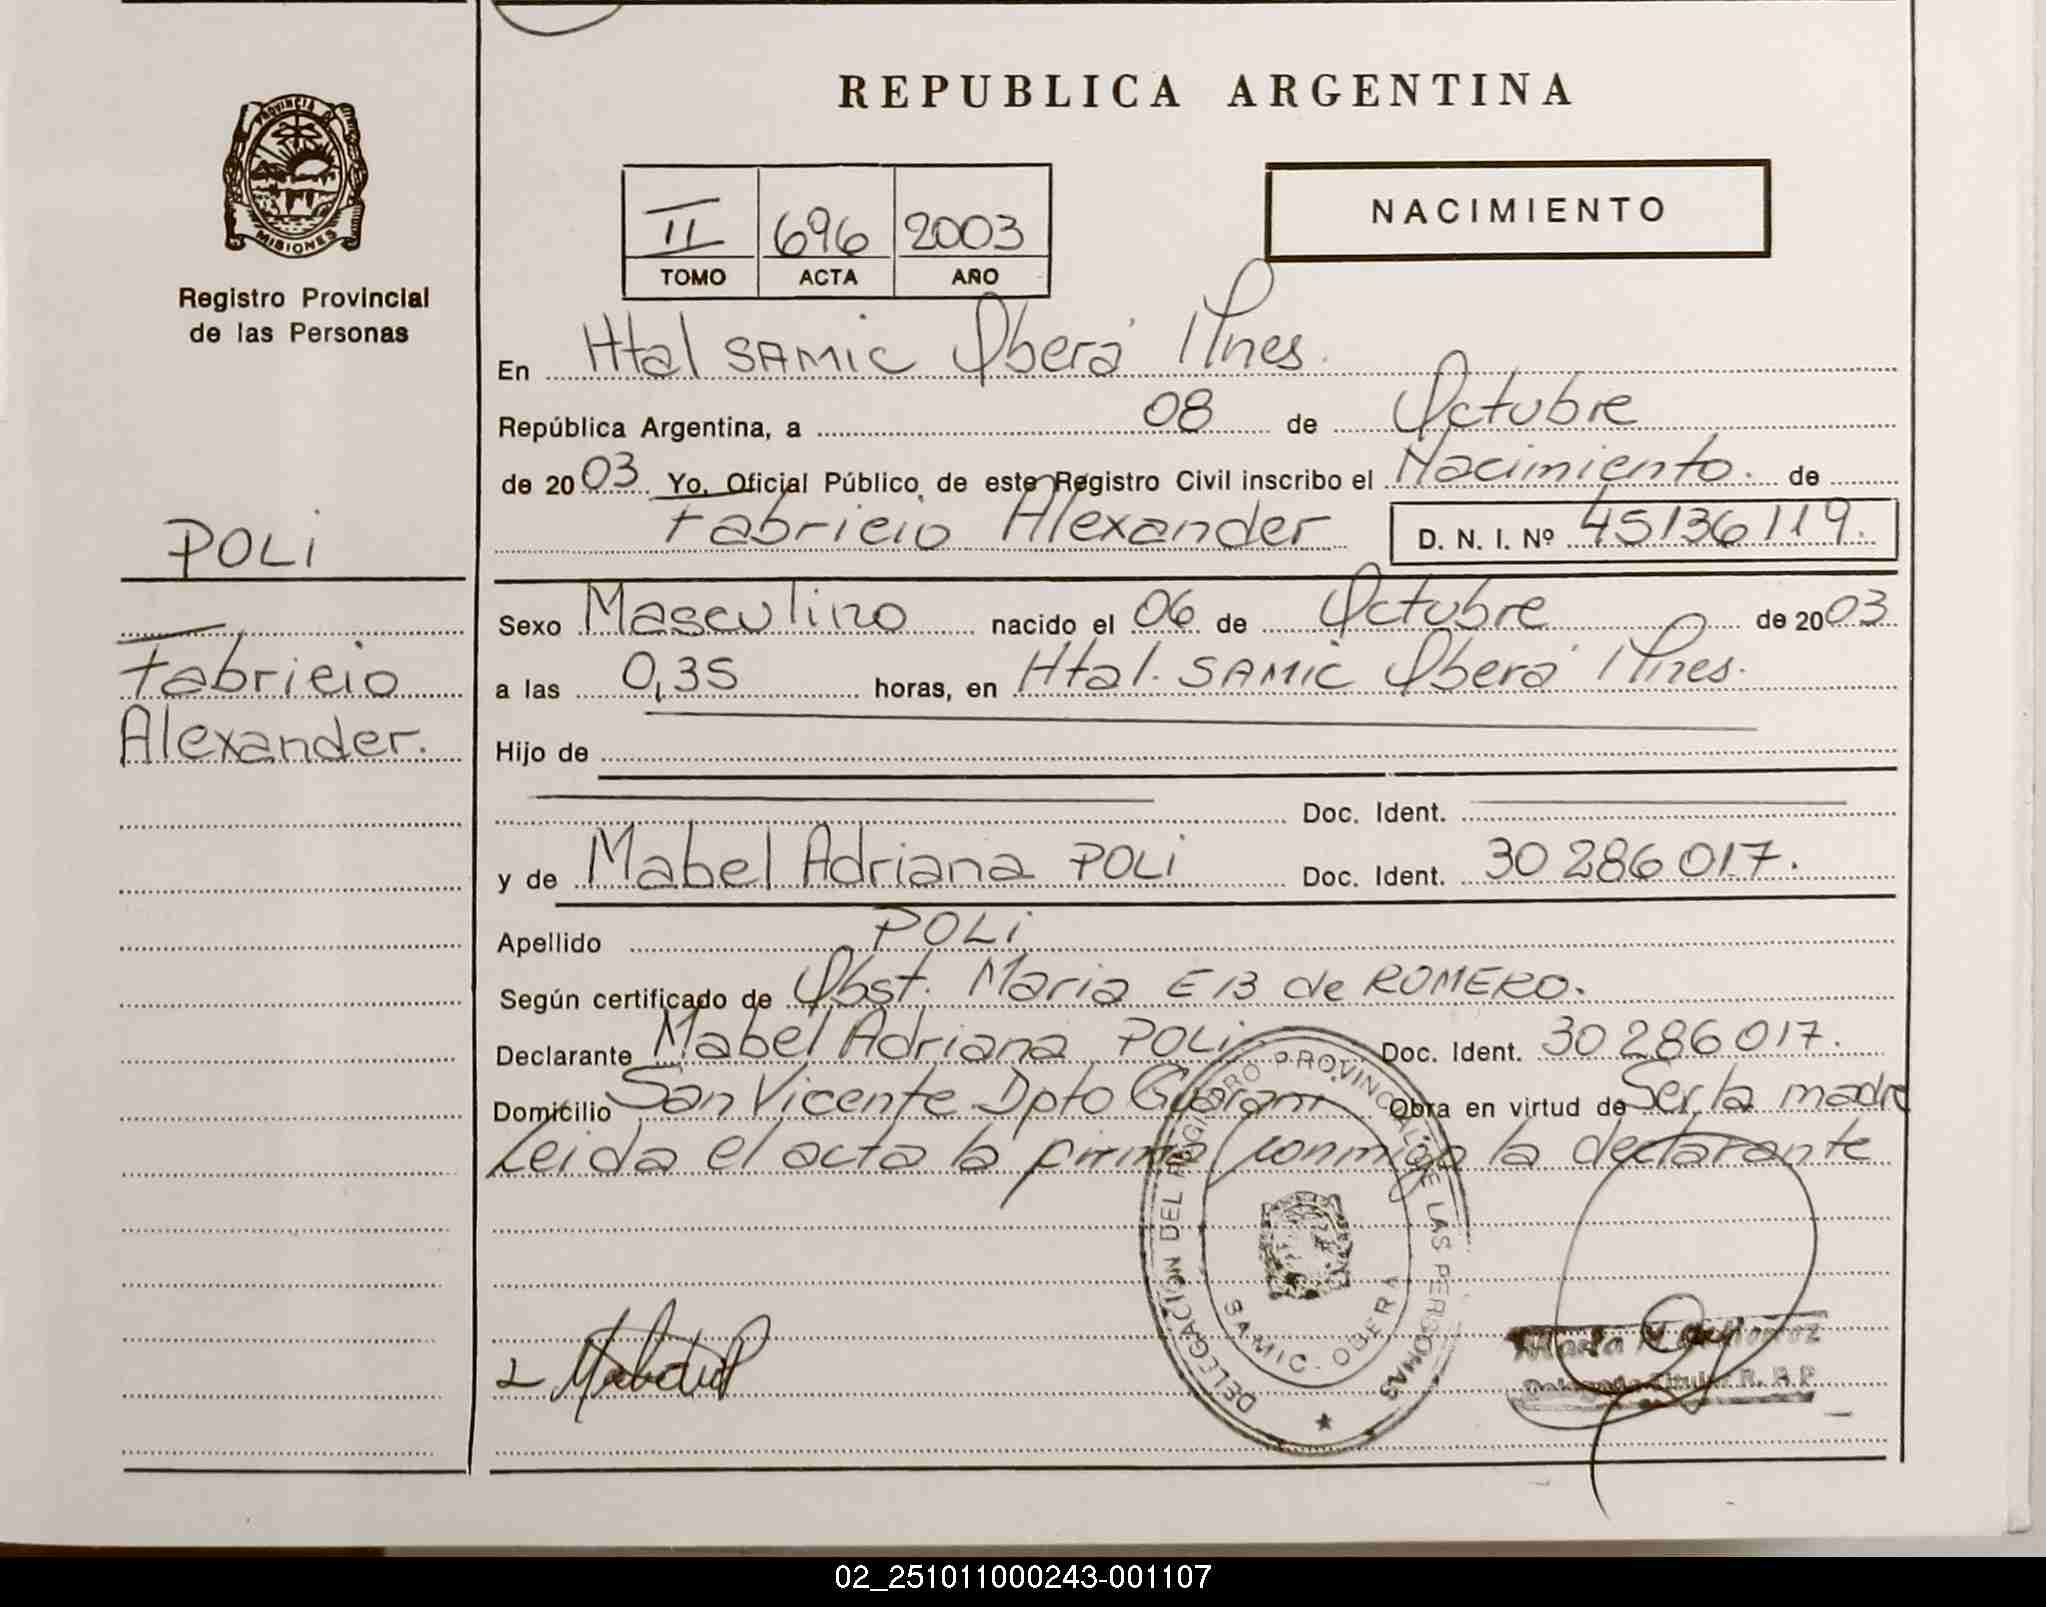 REPUBLICA ARGENTINA
PROVINCIA
MISIONES
Registro Provincial
de las Personas
II 696 2003
TOMO ACTA AÑO
NACIMIENTO
En Htal SAMIC Oberá Mnes.
República Argentina, a 08 de Octubre
de 2003 Yo, Oficial Público de este Registro Civil inscribo el Nacimiento. de
Fabricio Alexander D. N. I. Nº 45136119.
POLI
Fabricio
Alexander.
Sexo Masculino nacido el 06 de Octubre de 2003
a las 0,35 horas, en Htal. SAMIC Oberá Mnes.
Hijo de
Doc. Ident.
y de Mabel Adriana POLI Doc. Ident. 30 286 017.
Apellido POLI
Según certificado de Obst. Maria E B de ROMERO.
Declarante Mabel Adriana POLI. Doc. Ident. 30 286 017.
Domicilio San Vicente Dpto Guarani Obra en virtud de Ser la madre
Leida el acta la firma conmigo la declarante
DELEGACION DEL REGISTRO PROVINCIAL DE LAS PERSONAS
SAMIC - OBERA
Titular R. P. P.
02_251011000243-001107